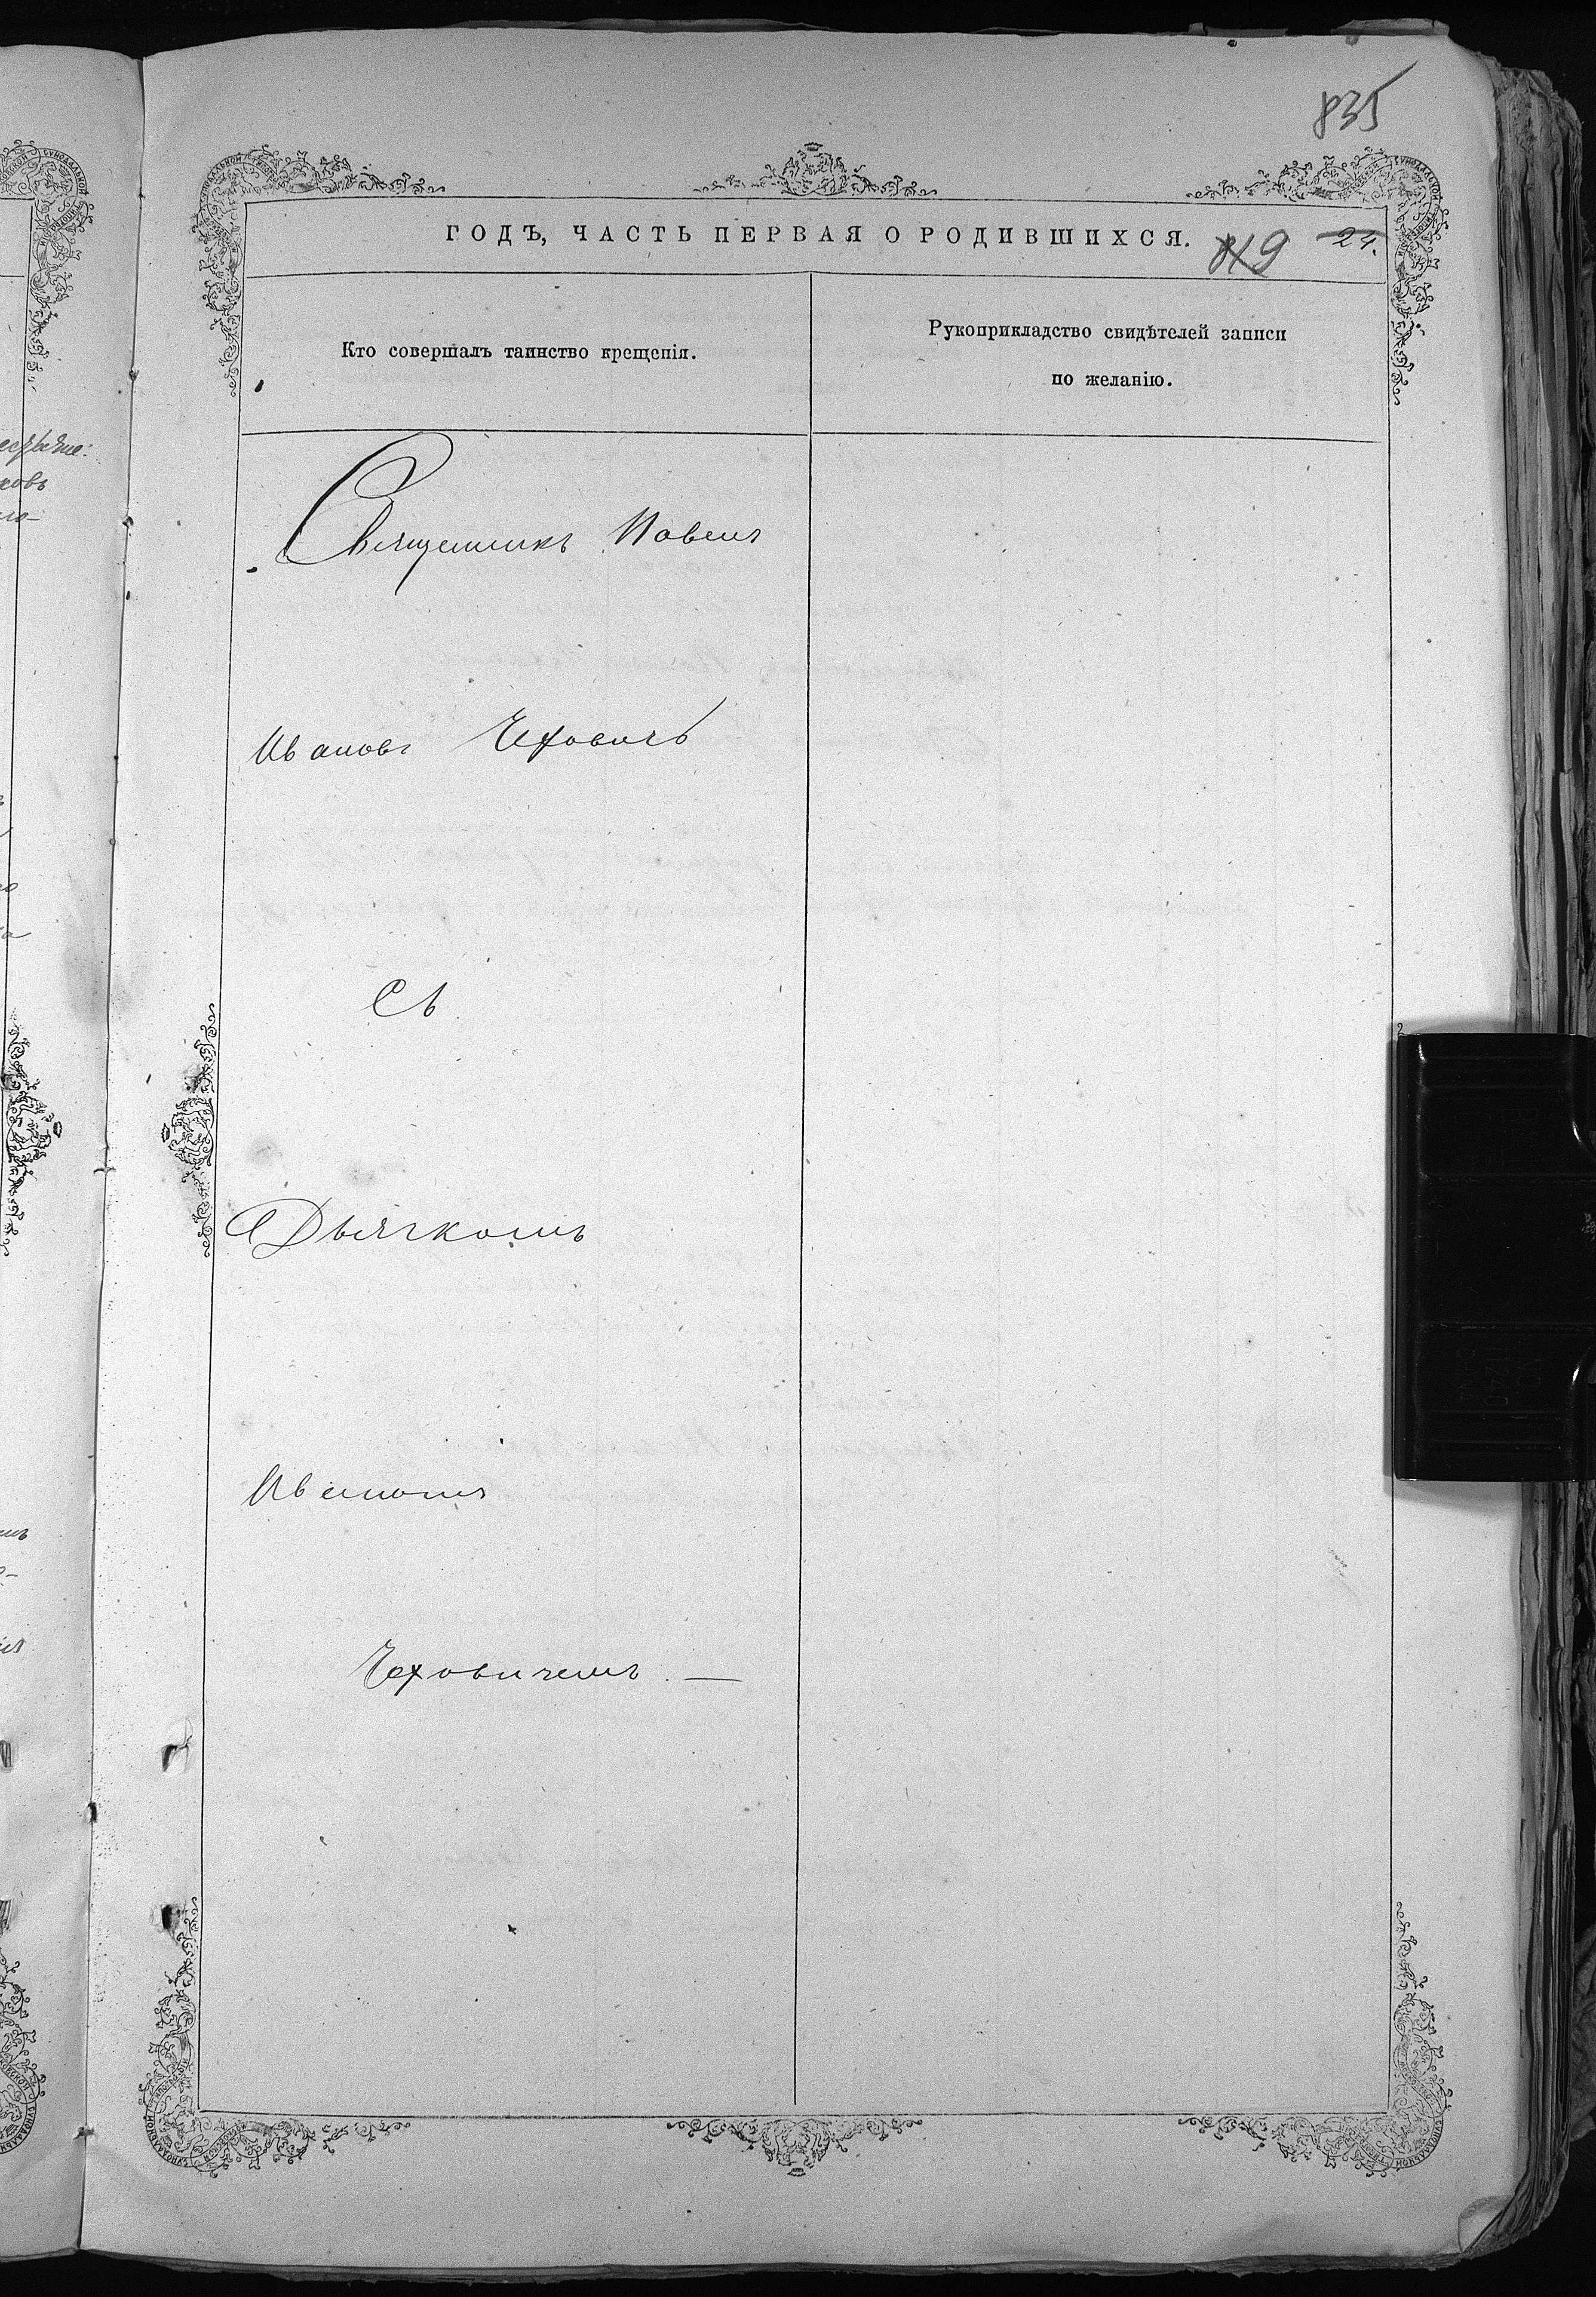 835
ГОДЪ, ЧАСТЬ ПЕРВАЯ О РОДИВШИХСЯ.
24.
Кто совершалъ таинство крещенія.
Рукоприкладство свидѣтелей записи
по желанію.
Священникъ Павелъ
Ивановъ Чеховичъ
Съ
Дьячкомъ
Иваномъ
Чеховичемъ. —